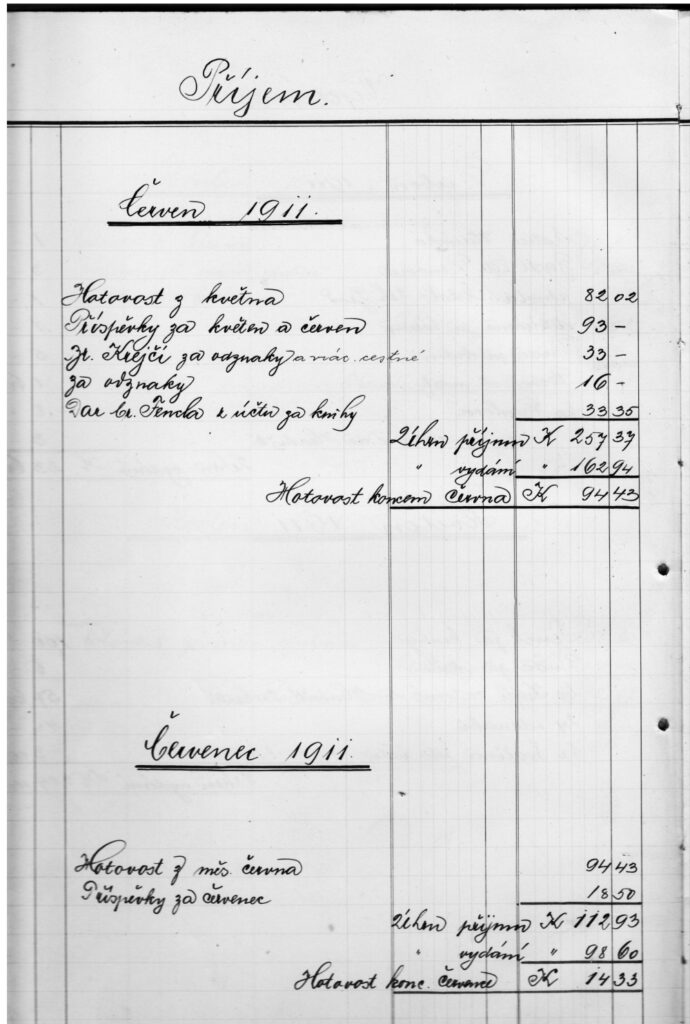 Příjem.
Červen 1911.
Hotovost z května 82 02
Příspěvky za květen a červen 93 –
Br. Krejčí za odznaky a viác. cestné 33 –
za odznaky 16 –
Dar br. Fencla z účtu za knihy 33 35
Úhrn příjmu K 257 37
" vydání " 162 94
Hotovost koncem června K 94 43
Červenec 1911.
Hotovost z měs. června 94 43
Příspěvky za červenec 18 50
Úhrn příjmu K 112 93
" vydání " 98 60
Hotovost konc. července K 14 33